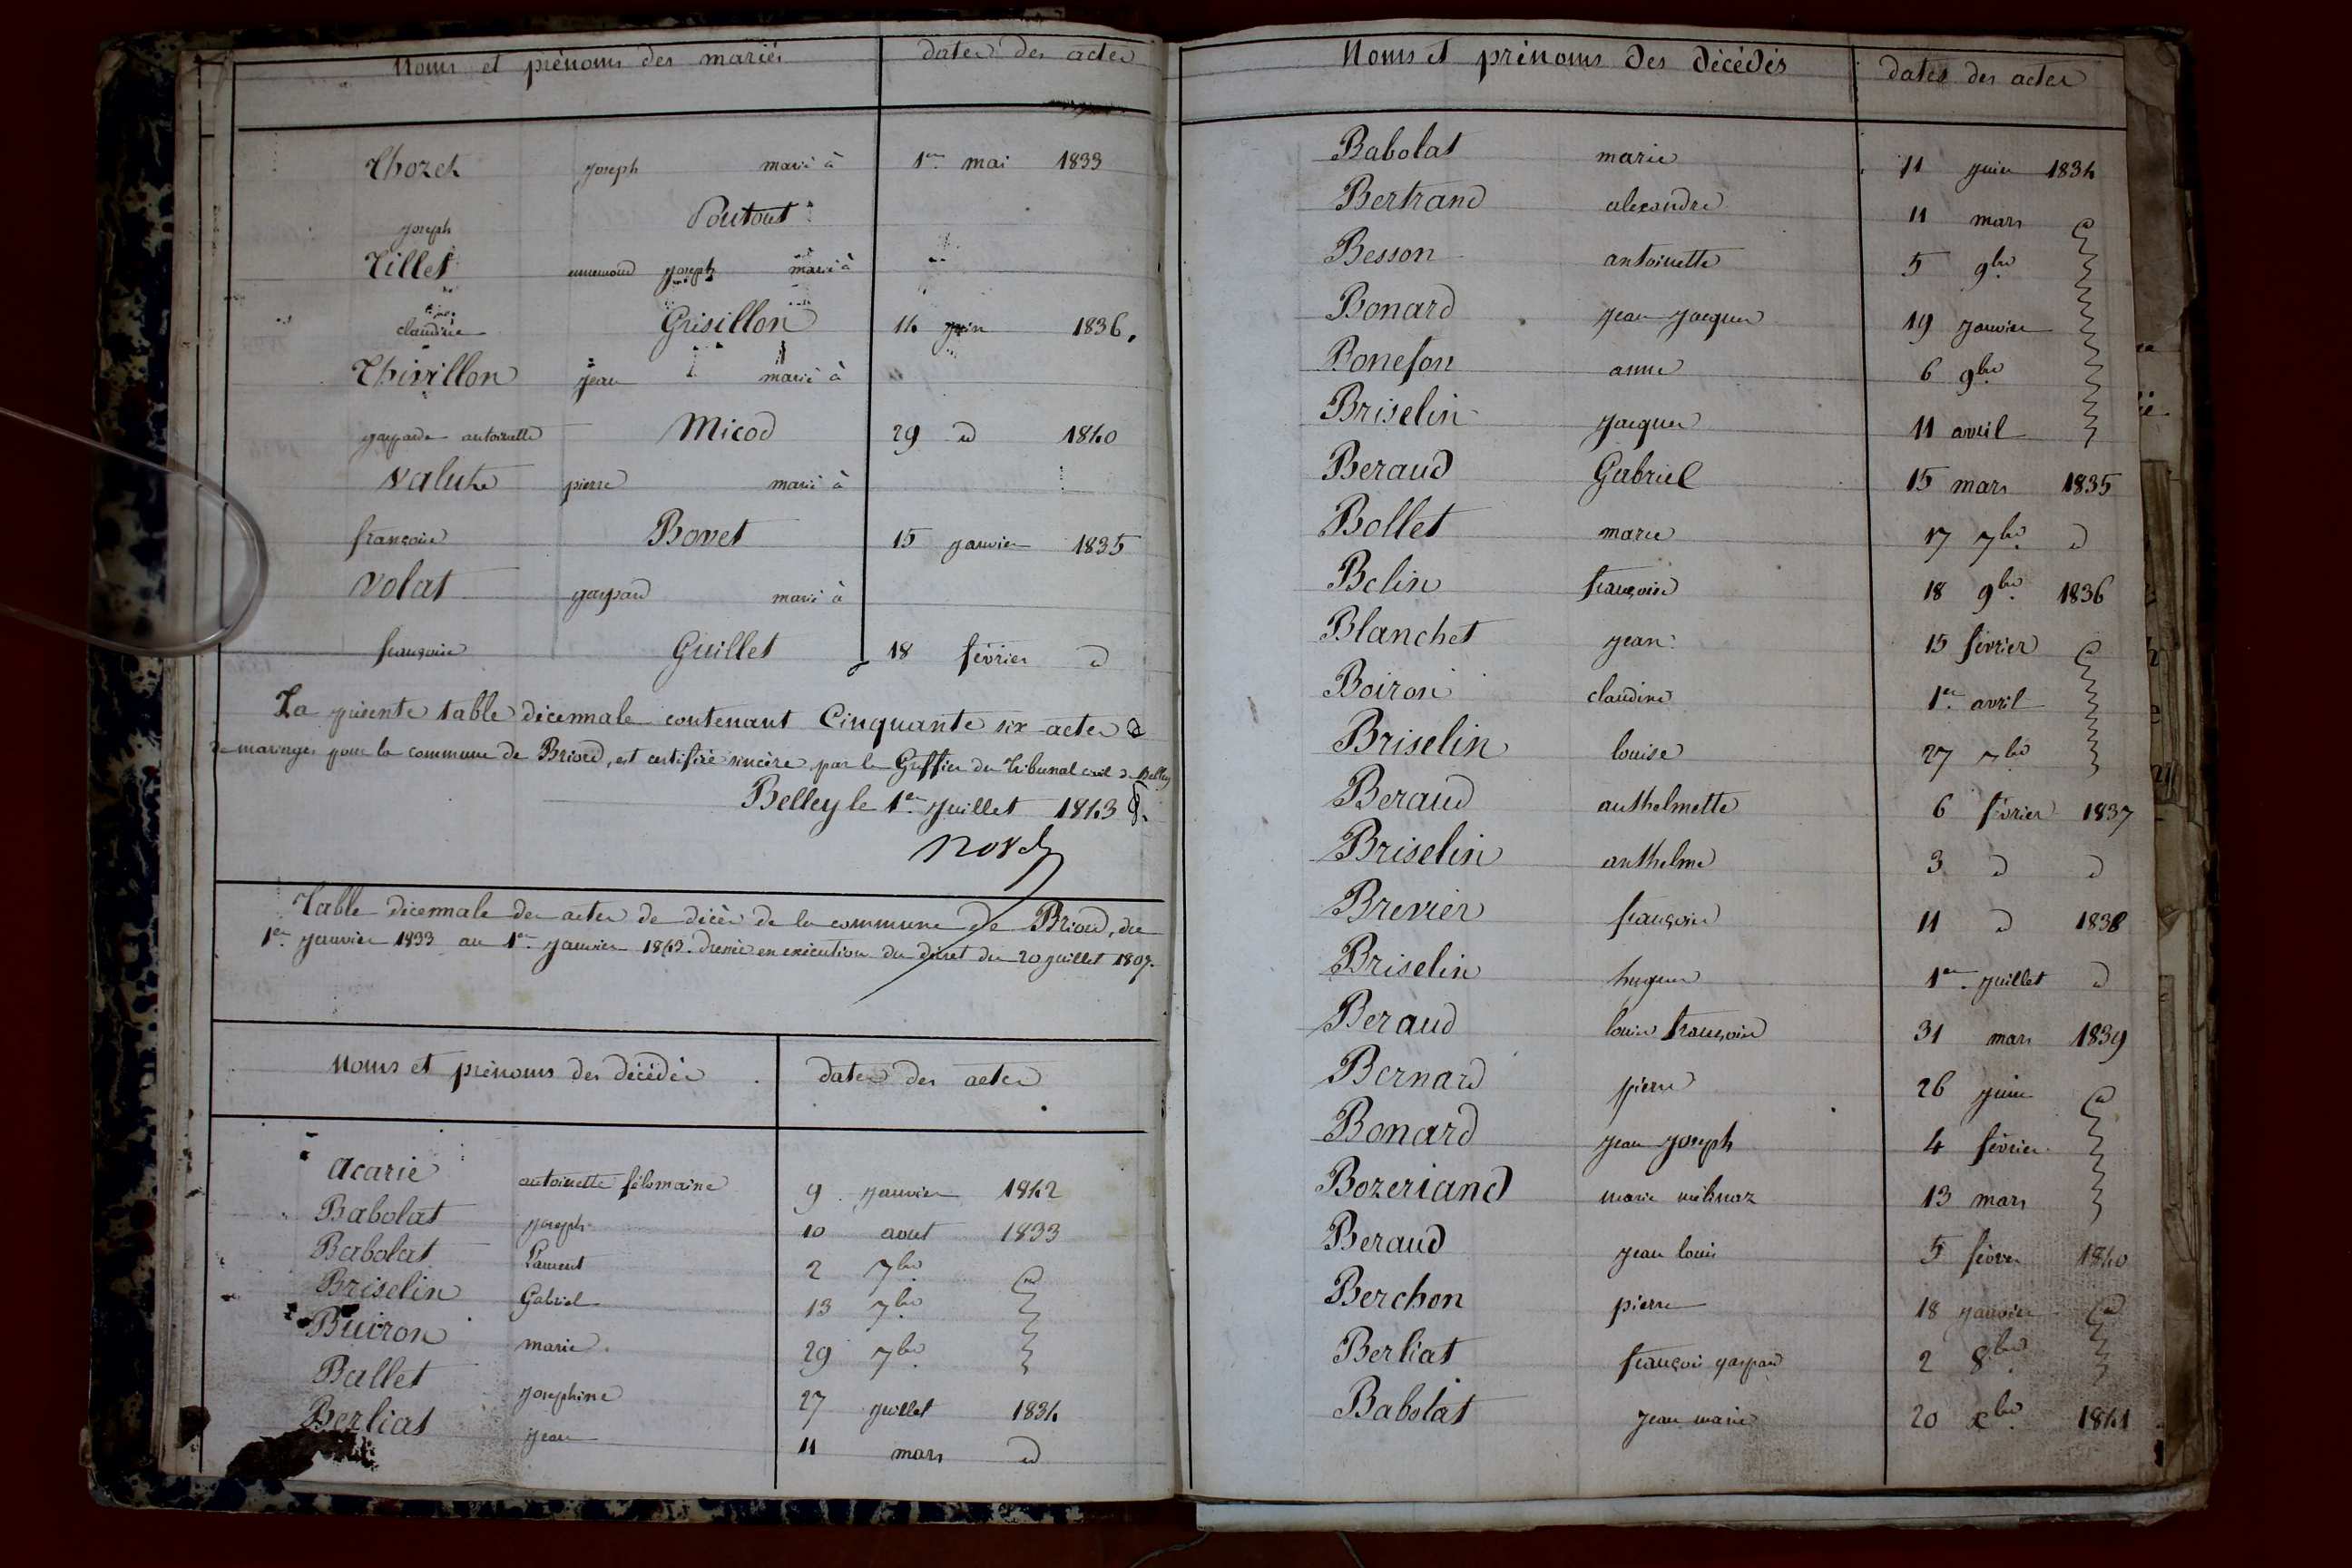 Noms et prénoms des mariés dates des actes
Thozet joseph marié à 1er mai 1833
joseph Poutout
Tillet ennemond joseph marié à
claudine Grisillon 14 juin 1836.
Thivillon jean marié à
gasparde antoinette Micod 29 d 1840
Valuke pierre marié à
françoise Bovet 15 janvier 1835
Volat gaspard marié à
françoise Guillet 18 février d
La présente table décennale contenant Cinquante six actes
de mariages pour la commune de Briord, est certifiée sincère par le Greffier du Tribunal civil de Belley
Belley le 1er juillet 1843
Table décennale des actes de décès de la commune de Briord, du
1er janvier 1833 au 1er janvier 1843. dressée en exécution du décret du 20 juillet 1807.
Noms et prénoms des décédés dates des actes
acarie antoinette filomaine 9 janvier 1842
Babolat joseph 10 aout 1833
Babolat Laurent 2 7bre
Briselin Gabriel 13 7bre
Buiron marie 29 7bre
Ballet josephine 27 juillet 1834
Berliat jean 11 mars d
Noms et prénoms des décédés dates des actes
Babolat marie 11 juin 1834
Bertrand alexandre 11 mars
Besson antoinette 5 9bre
Bonard jean jacques 19 janvier
Bonefon anne 6 9bre
Briselin jacques 11 avril
Beraud Gabriel 15 mars 1835
Bollet marie 17 7bre d
Belin françoise 18 9bre 1836
Blanchet jean 15 février
Boiron claudine 1er avril
Briselin louise 27 7bre
Beraud anthelmette 6 février 1837
Briselin anthelme 3 d d
Brevier françoise 11 d 1838
Briselin hugues 1er juillet d
Beraud louis françois 31 mars 1839
Bernard pierre 26 juin
Bonard jean joseph 4 février
Bozeriand marie 13 mars
Beraud jean louis 5 févrer 1840
Berchon pierre 18 janvier
Berliat françois gaspard 2 8bre
Babolat jean marie 20 xbre 1841